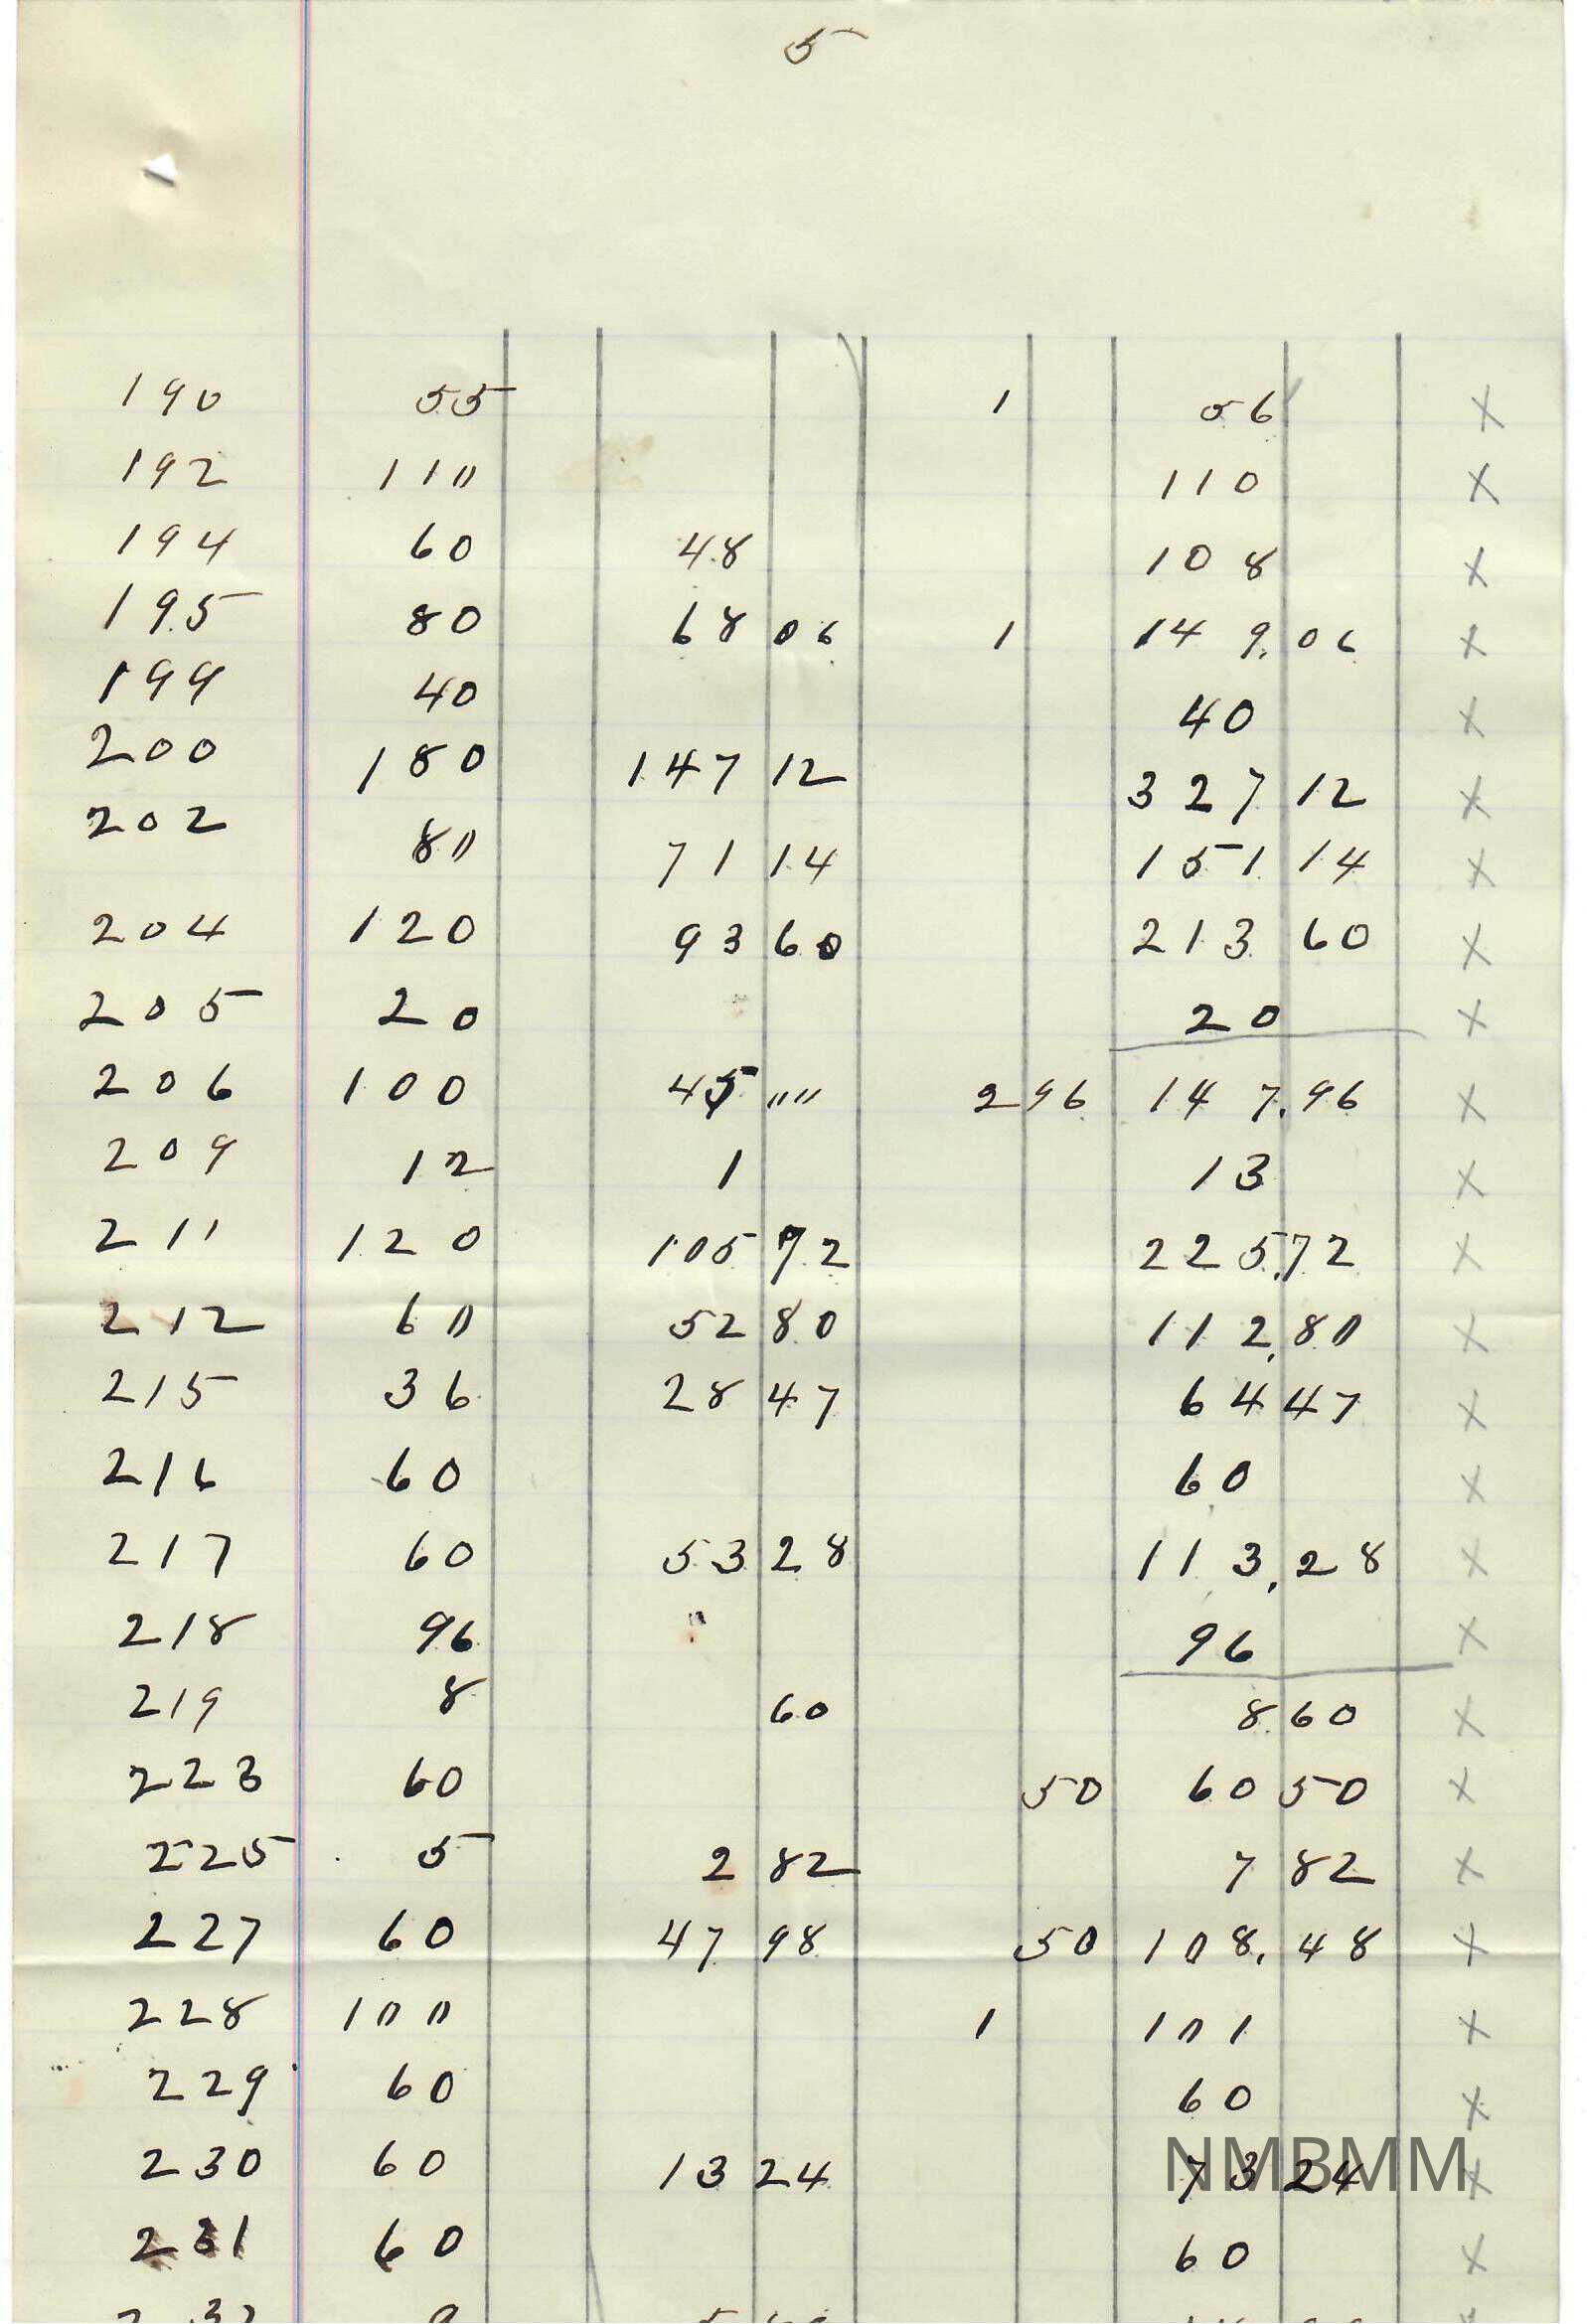 5
190 55 1 56 X
192 110 110 X
194 60 48 108 X
195 80 68 06 1 149.06 X
199 40 40 X
200 180 147 12 327 12 X
202 80 71 14 151 14 X
204 120 93 60 213 60 X
205 20 20 X
206 100 45 "" 2 96 147.96 X
209 12 1 13 X
211 120 105 72 225.72 X
212 60 52 80 112.80 X
215 36 28 47 64 47 X
216 60 60 X
217 60 53 28 113.28 X
218 96 96 X
219 8 60 8 60 X
223 60 50 60 50 X
225 5 2 82 7 82 X
227 60 47 98 50 108.48 X
228 100 1 101 X
229 60 60 X
230 60 13 24 73 24 X
NMBMM
231 60 60 X